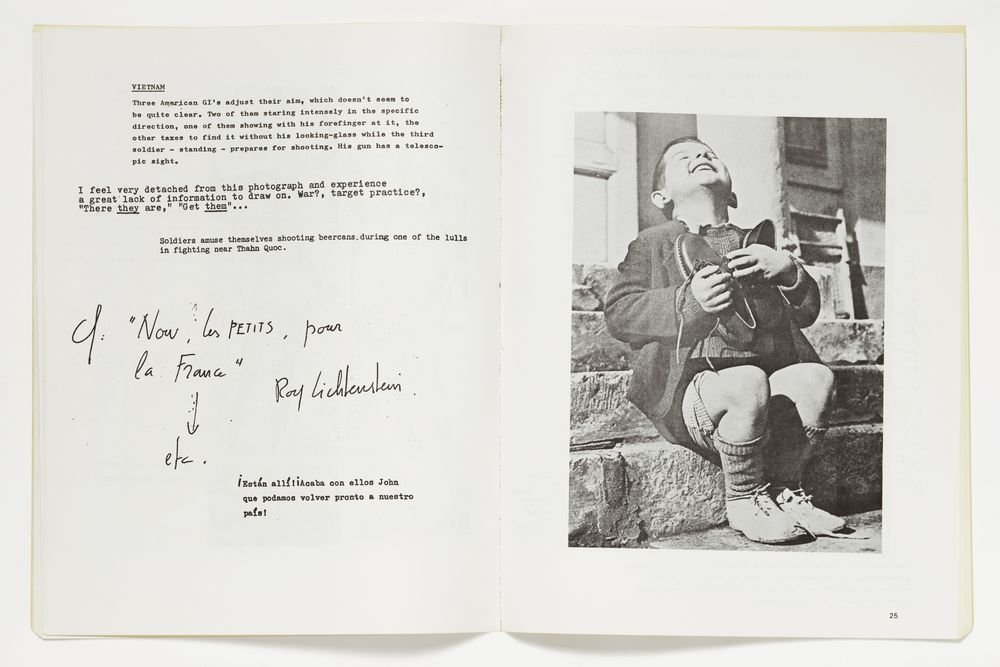 VIETNAM
Three American GI's adjust their aim, which doesn't seem to
be quite clear. Two of them staring intensely in the specific
direction, one of them showing with his forefinger at it, the
other taxes to find it without his looking-glass while the third
soldier - standing - prepares for shooting. His gun has a telesco-
pic sight.
I feel very detached from this photograph and experience
a great lack of information to draw on. War?, target practice?,
"There they are," "Get them"...
Soldiers amuse themselves shooting beercans.during one of the lulls
in fighting near Thahn Quoc.
cf: "Now, les PETITS, pour
la France"
Roy Lichtenstein.
etc.
¡Están allí!¡Acaba con ellos John
que podamos volver pronto a nuestro
país!
25